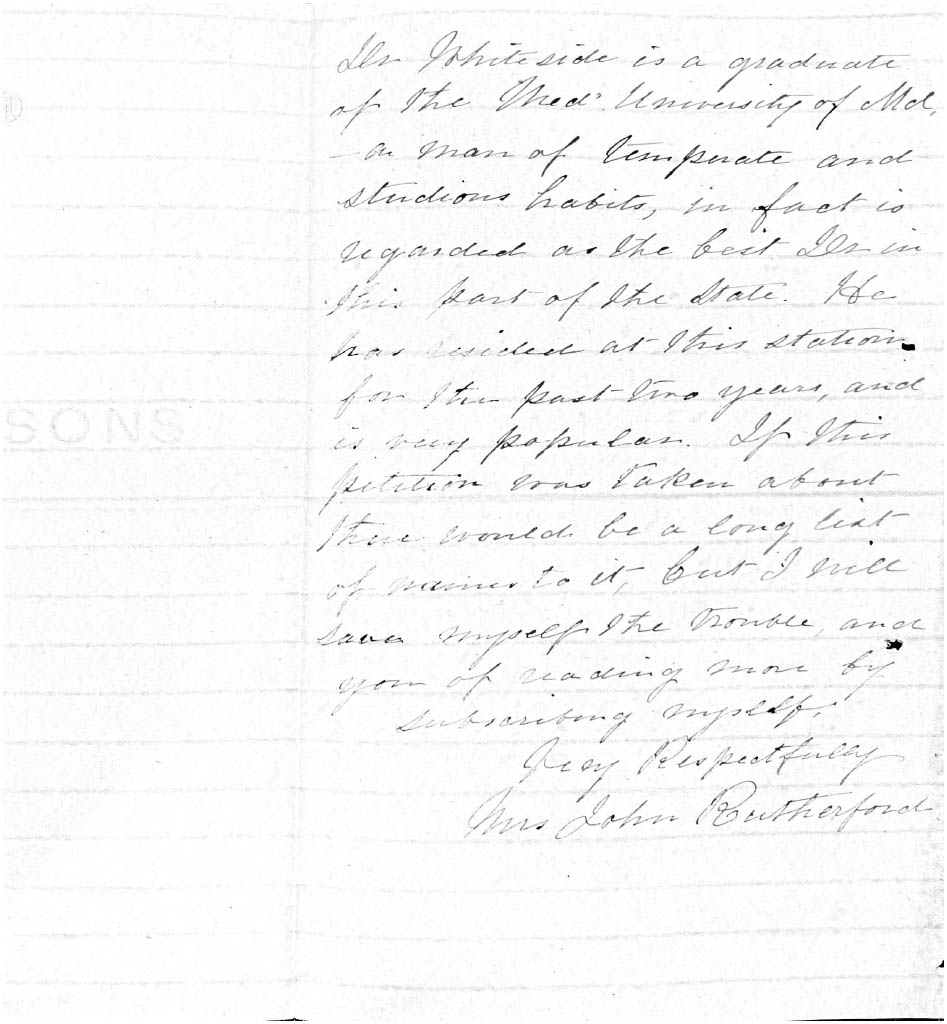 Dr Whiteside is a graduate
of the Med' University of Md,
- a man of temperate and
studious habits, in fact is
regarded as the best Dr in
this part of the State. He
has resided at this station
for the past two years, and
is very popular. If this
petition was taken about
there would be a long list
of names to it, but I will
save myself the trouble, and
you of reading more by
subscribing myself.
Very Respectfully
Mrs John Rutherford
SONS